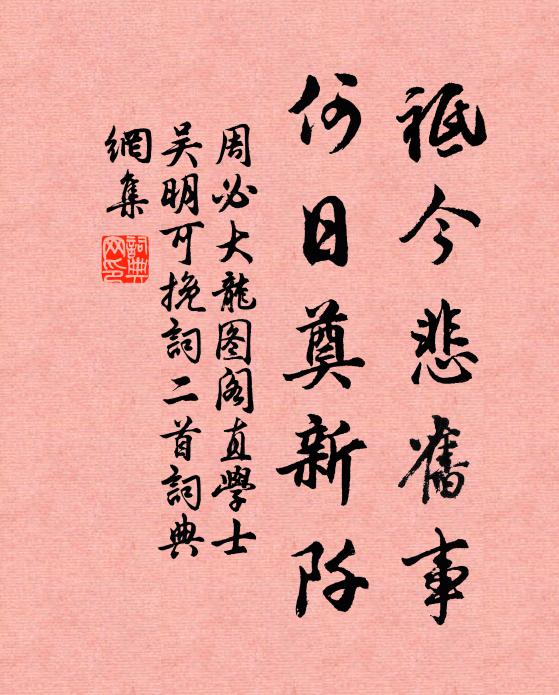 祗今悲舊事
何日奠新阡
周必大龍图阁直學士
吴明可挽詞二首詞典
網集
詞典
网印